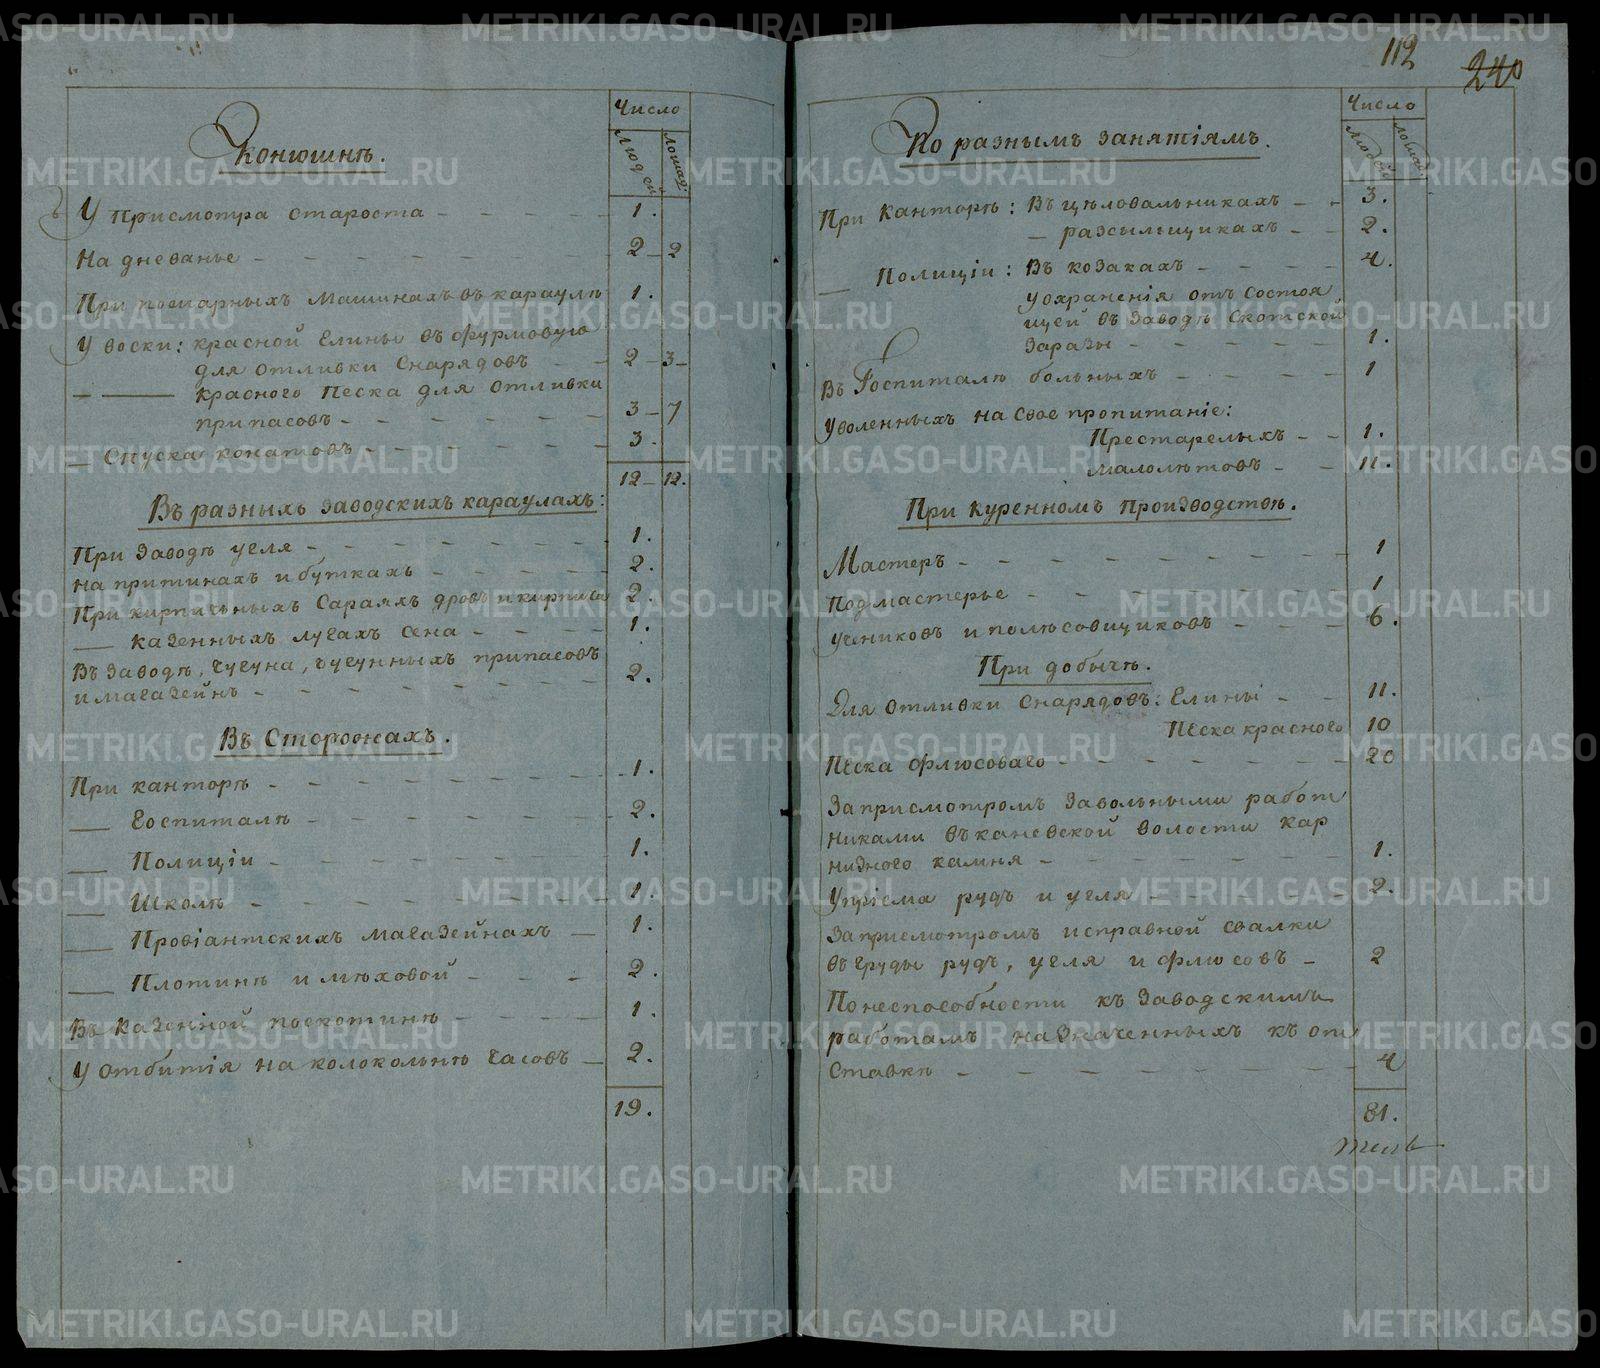 Число
Людей
лошад:
Конюшнѣ.
У присмотра староста - - - - 1.
На дневанье - - - - - - 2 - 2
При пожарныхъ машинахъ въ караулѣ 1.
У воски: красной глины въ формовую
для отливки снарядовъ - 2 - 3 -
— красного песка для отливки
припасовъ - - - - - 3 - 7
— Спуска конатовъ - - - - - 3.
12 - 12.
Въ разныхъ заводскихъ караулахъ:
При заводѣ угля - - - - - - - 1.
на притинахъ и буткахъ - - - - - 2.
При кирпичныхъ сараяхъ дровъ и кирпича 2.
— казенныхъ лугахъ сена - - - - 1.
Въ заводѣ, чугуна, чугунныхъ припасовъ
и магазейнъ - - - - - - - 2.
Въ Сторожахъ.
При канторѣ - - - - - - - - 1.
— госпиталѣ - - - - - - - 2.
— Полиціи - - - - - - - - 1.
— Школѣ - - - - - - - - 1.
— Провіантскихъ магазейнахъ - 1.
— Плотинѣ и мѣховой - - - 2.
Въ казенной поскотинѣ - - - - 1.
У отбитія на колокольнѣ часовъ - 2.
19.
112
240
Число
Людей
лошад:
По разнымъ занятіямъ.
При Канторѣ: Въ цѣловальникахъ - - 3.
— разсильщикахъ - - 2.
— Полиціи: Въ козакахъ - - - - 4.
у охраненія отъ состоя
щей въ заводѣ скотской
заразы - - - - - - 1.
Въ Госпиталѣ больныхъ - - - - 1
Уволенныхъ на свое пропитаніе:
Престарелыхъ - - 1.
малолѣтовъ - - 11.
При куренномъ производствѣ.
Мастеръ - - - - - - - - - 1
Подмастерье - - - - - - - - 1
учениковъ и полѣсовщиковъ - - - - 6.
При добычѣ.
Для отливки снарядовъ: глины - - 11.
песка красного 10
песка флюсоваго - - - - - - - 20
За присмотромъ за вольными работ
никами въ каневской волости кар
низного камня - - - - - - - 1.
У пріема рудъ и угля - - - - - 2.
За присмотромъ исправной свалки
въ груды рудъ, угля и флюсовъ - 2
По неспособности къ заводскимъ
работамъ назначенныхъ къ от
ставкѣ - - - - - - - - - 4
81.
METRIKI.GASO-URAL.RU